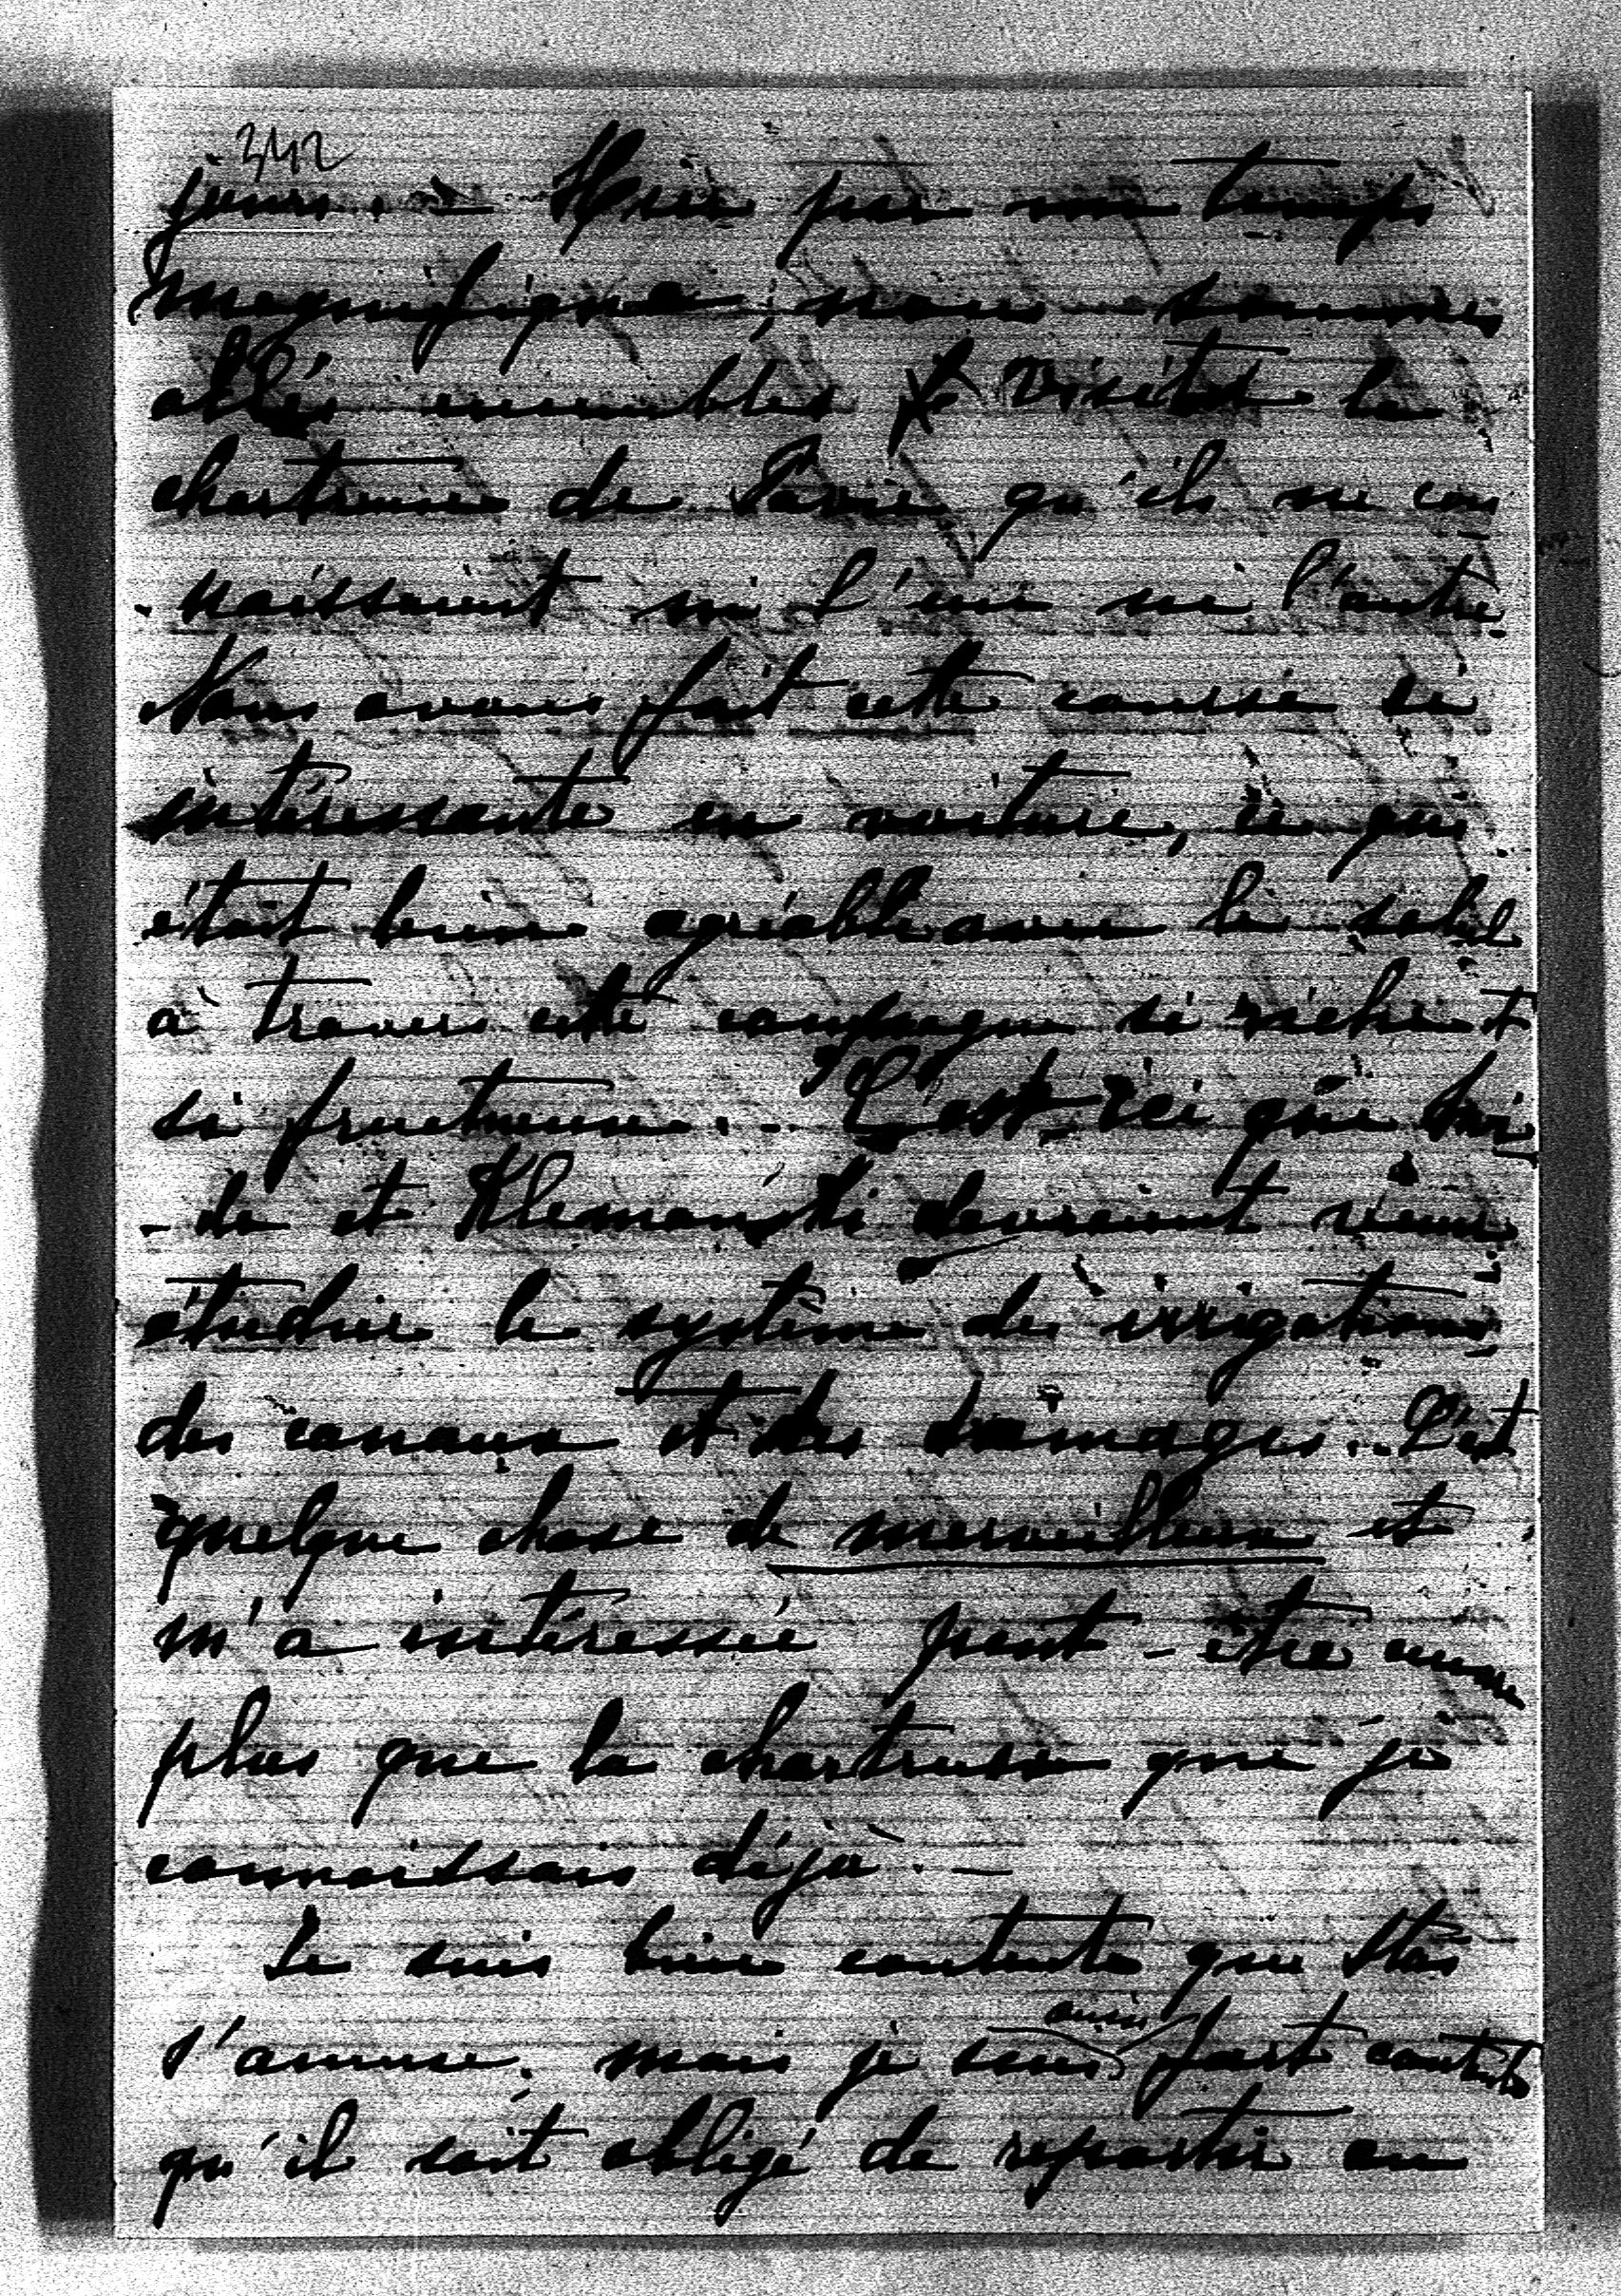 342
jours. — Hier par un temps
magnifique, nous sommes
allés ensembles visiter la
chartreuse de Pavie qu'ils ne con
-naissaient ni l'un ni l'autre.
Nous avons fait cette course si
intéressante en voiture, ce qui
était bien agréable avec le soleil
à travers cette campagne si riche et
si fructueuse... C'est ici que
-de et devraient venir
étudier le système des irrigations,
des canaux et des drainages... C'est
quelque chose de merveilleux et
m'a intéressée peut-être encore
plus que la chartreuse que je
connaissais déjà. —
Je suis bien contente que Stas
s'amuse, mais je suis aussi fort contente
qu'il soit obligé de repartir en